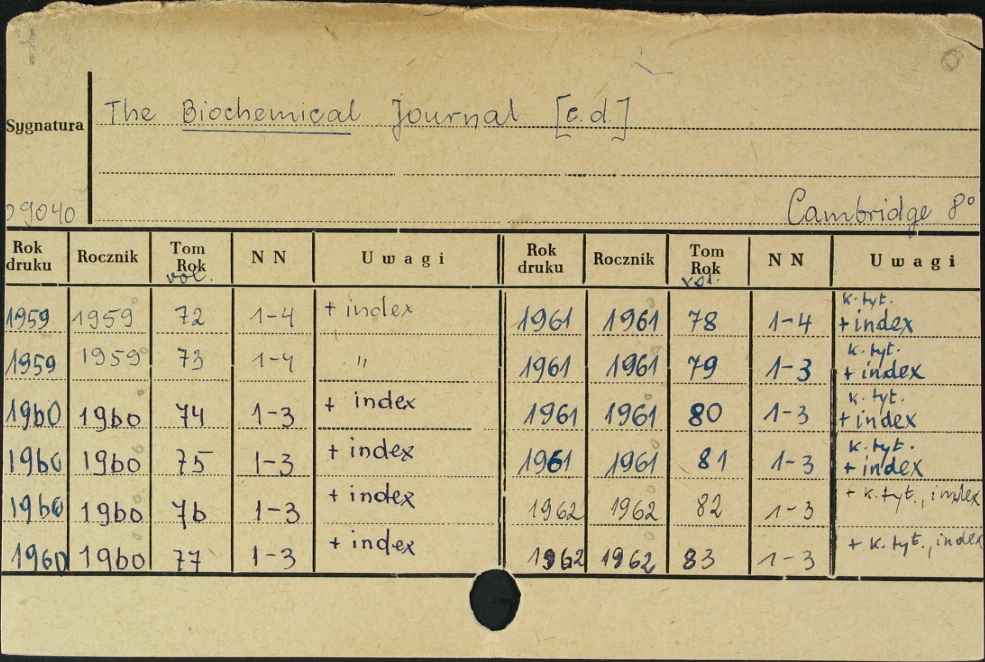 The Biochemical Journal [c.d.]
Sygnatura
09040
Cambridge 8°
Rok druku Rocznik Tom Rok vol. N N Uwagi Rok druku Rocznik Tom Rok vol. N N Uwagi
1959 1959 72 1-4 + index 1961 1961 78 1-4 k. tyt. + index
1959 1959 73 1-4 " 1961 1961 79 1-3 k. tyt. + index
1960 1960 74 1-3 + index 1961 1961 80 1-3 k. tyt. + index
1960 1960 75 1-3 + index 1961 1961 81 1-3 k. tyt. + index
1960 1960 76 1-3 + index 1962 1962 82 1-3 + k. tyt., index
1960 1960 77 1-3 + index 1962 1962 83 1-3 + k. tyt., index